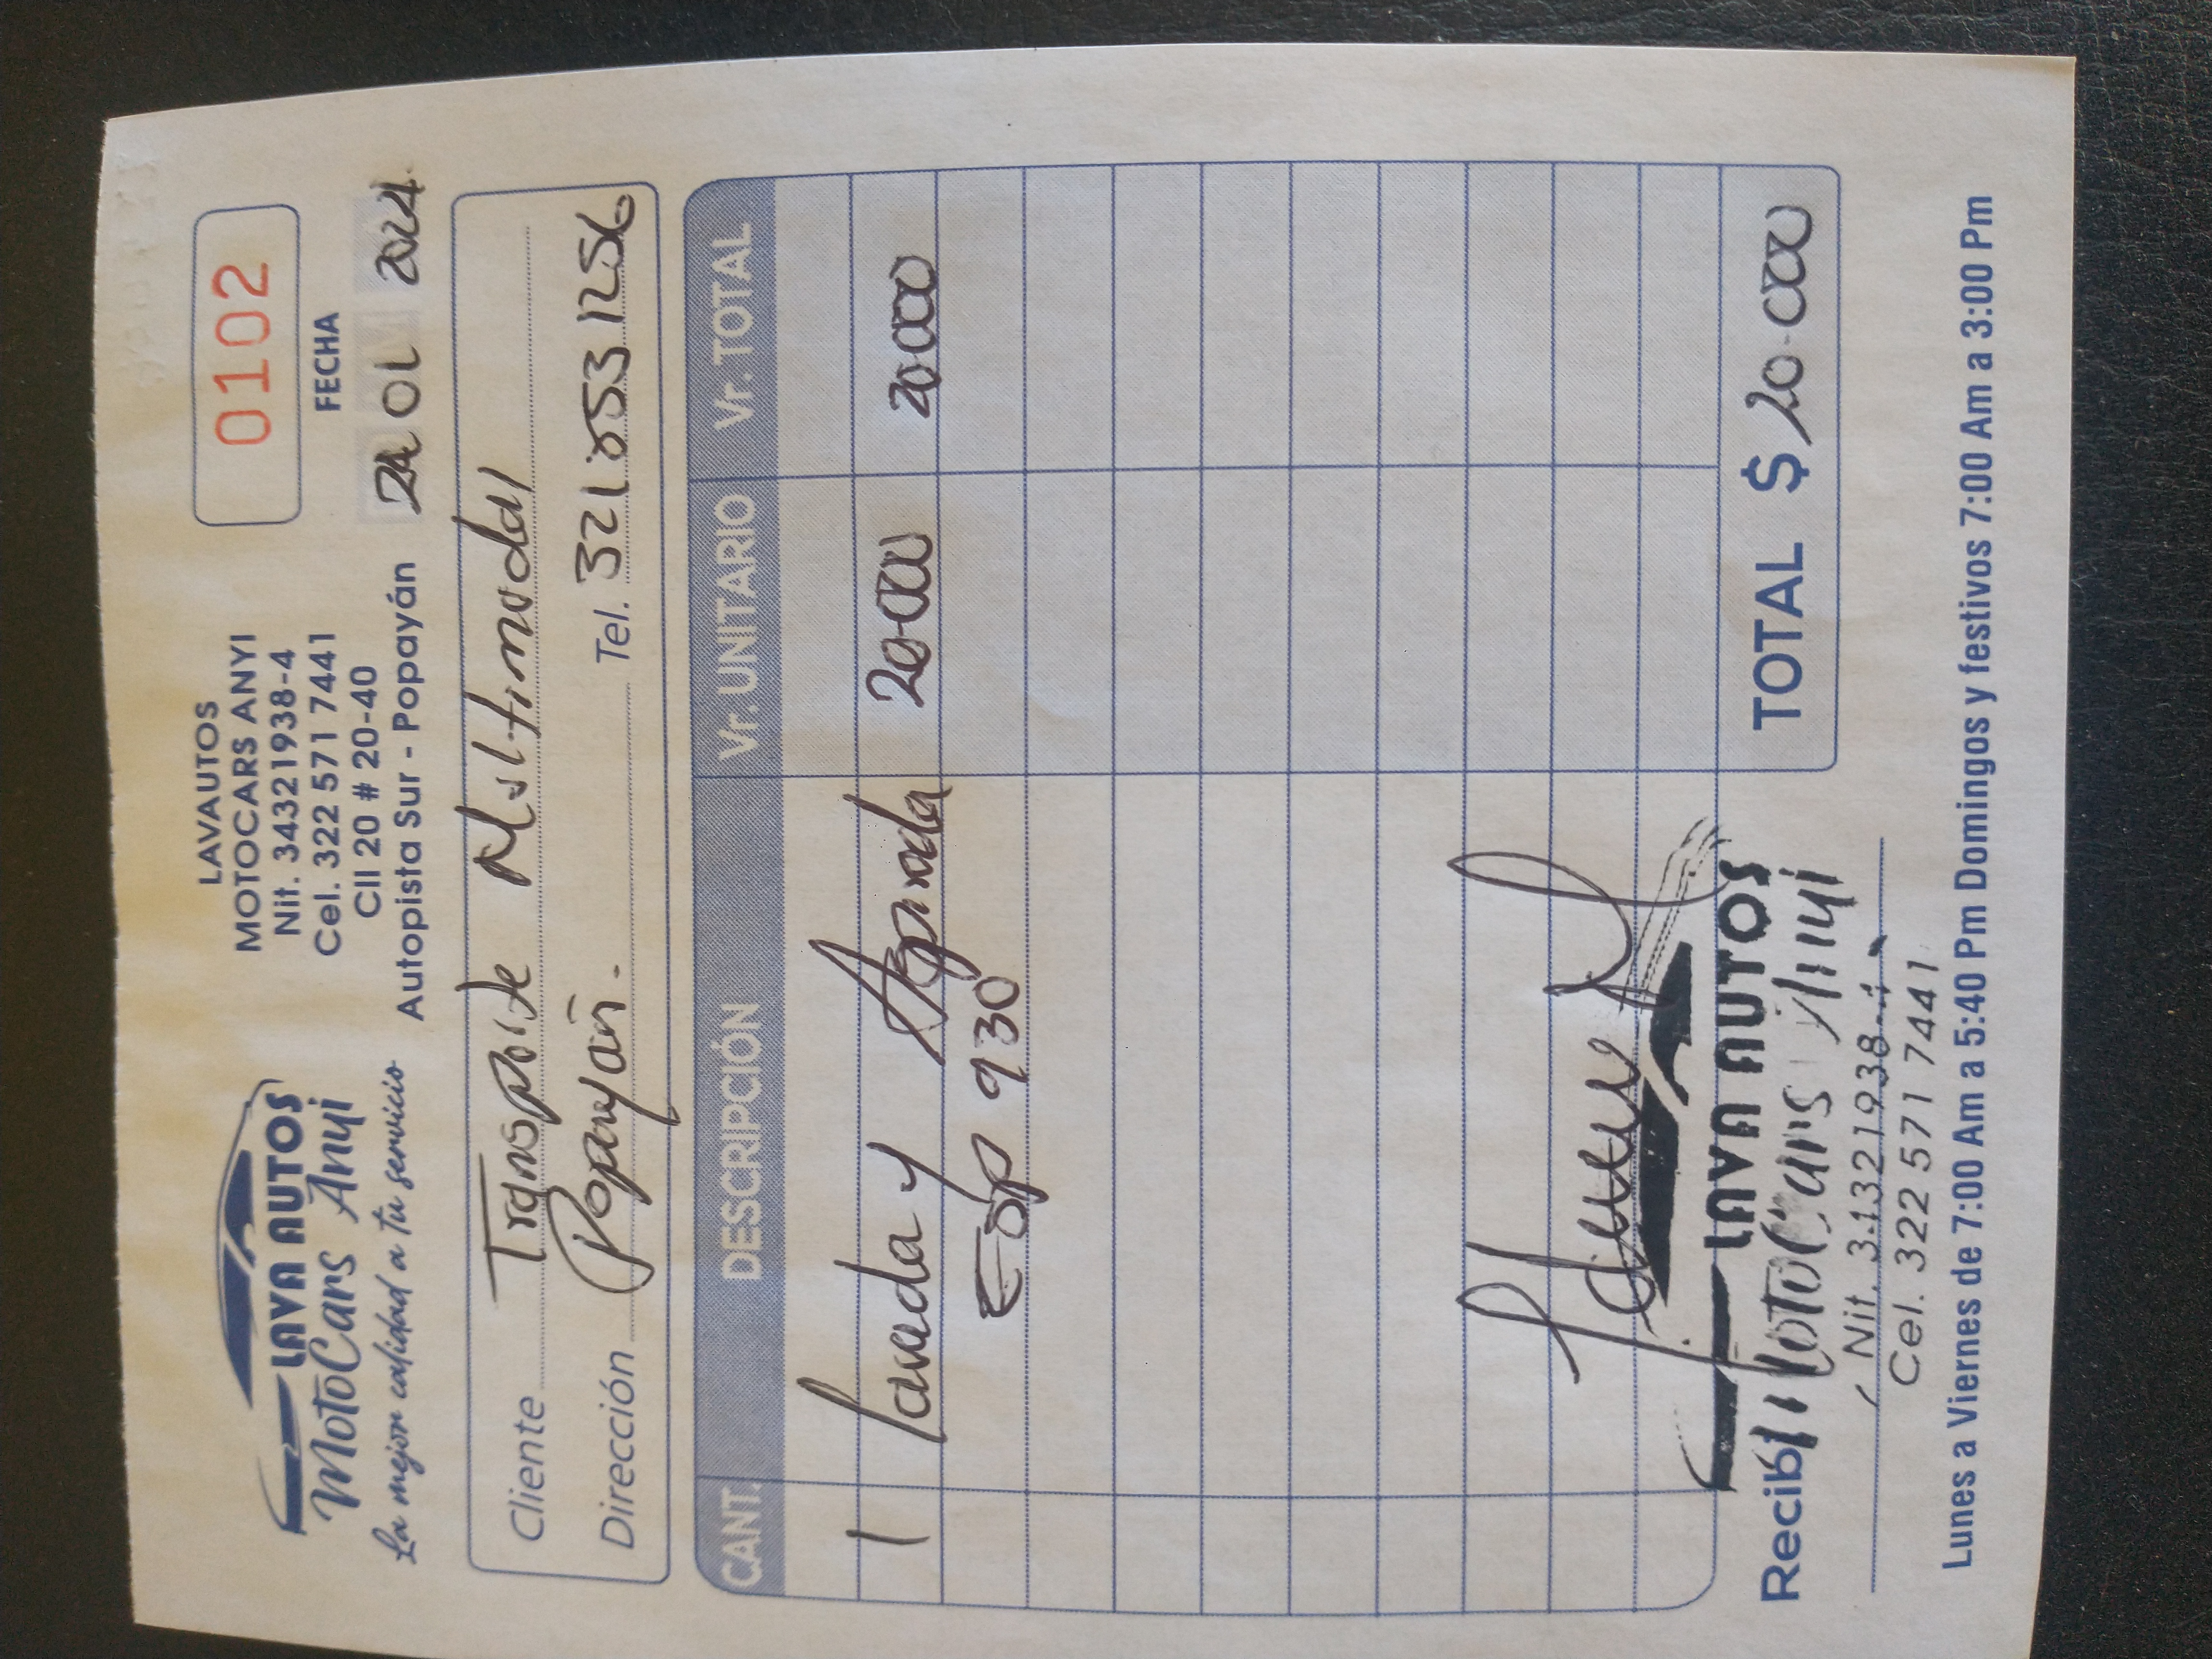 LAVA AUTOS
MotoCars Anyi
La mejor calidad a tu servicio
LAVAUTOS
MOTOCARS ANYI
Nit. 34321938-4
Cel. 322 571 7441
Cll 20 # 20-40
Autopista Sur - Popayán
0102
FECHA
24 01 2024
Cliente Transporte Multimodal
Dirección Popayán. Tel. 321 853 1256
CANT. DESCRIPCIÓN Vr. UNITARIO Vr. TOTAL
1 Lavada y Aspirada 20.000 20.000
930
TOTAL $ 20.000
Recibí
LAVA AUTOS
MotoCars Anyi
Cel. 322 571 7441
Lunes a Viernes de 7:00 Am a 5:40 Pm Domingos y festivos 7:00 Am a 3:00 Pm